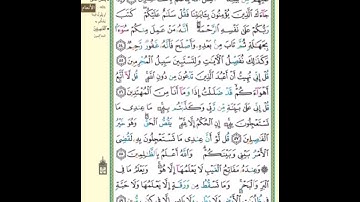 جَآءَكَ ٱلَّذِينَ يُؤْمِنُونَ بِـَٔايَٰتِنَا فَقُلْ سَلَٰمٌ عَلَيْكُمْ ۖ كَتَبَ
رَبُّكُمْ عَلَىٰ نَفْسِهِ ٱلرَّحْمَةَ ۖ أَنَّهُۥ مَنْ عَمِلَ مِنكُمْ سُوٓءًۢا
بِجَهَٰلَةٍ ثُمَّ تَابَ مِنۢ بَعْدِهِۦ وَأَصْلَحَ فَأَنَّهُۥ غَفُورٌ رَّحِيمٌ ﴿٥٤﴾
وَكَذَٰلِكَ نُفَصِّلُ ٱلْـَٔايَٰتِ وَلِتَسْتَبِينَ سَبِيلُ ٱلْمُجْرِمِينَ ﴿٥٥﴾
قُلْ إِنِّى نُهِيتُ أَنْ أَعْبُدَ ٱلَّذِينَ تَدْعُونَ مِن دُونِ ٱللَّهِ ۚ قُل لَّآ
أَتَّبِعُ أَهْوَآءَكُمْ ۙ قَدْ ضَلَلْتُ إِذًا وَمَآ أَنَا۠ مِنَ ٱلْمُهْتَدِينَ ﴿٥٦﴾
قُلْ إِنِّى عَلَىٰ بَيِّنَةٍ مِّن رَّبِّى وَكَذَّبْتُم بِهِۦ ۚ مَا عِندِى مَا
تَسْتَعْجِلُونَ بِهِۦٓ ۚ إِنِ ٱلْحُكْمُ إِلَّا لِلَّهِ ۖ يَقُصُّ ٱلْحَقَّ ۖ وَهُوَ خَيْرُ
ٱلْفَٰصِلِينَ ﴿٥٧﴾ قُل لَّوْ أَنَّ عِندِى مَا تَسْتَعْجِلُونَ بِهِۦ لَقُضِىَ
ٱلْأَمْرُ بَيْنِى وَبَيْنَكُمْ ۗ وَٱللَّهُ أَعْلَمُ بِٱلظَّٰلِمِينَ ﴿٥٨﴾
وَعِندَهُۥ مَفَاتِحُ ٱلْغَيْبِ لَا يَعْلَمُهَآ إِلَّا هُوَ ۚ وَيَعْلَمُ مَا فِى
ٱلْبَرِّ وَٱلْبَحْرِ ۚ وَمَا تَسْقُطُ مِن وَرَقَةٍ إِلَّا يَعْلَمُهَا وَلَا حَبَّةٍ